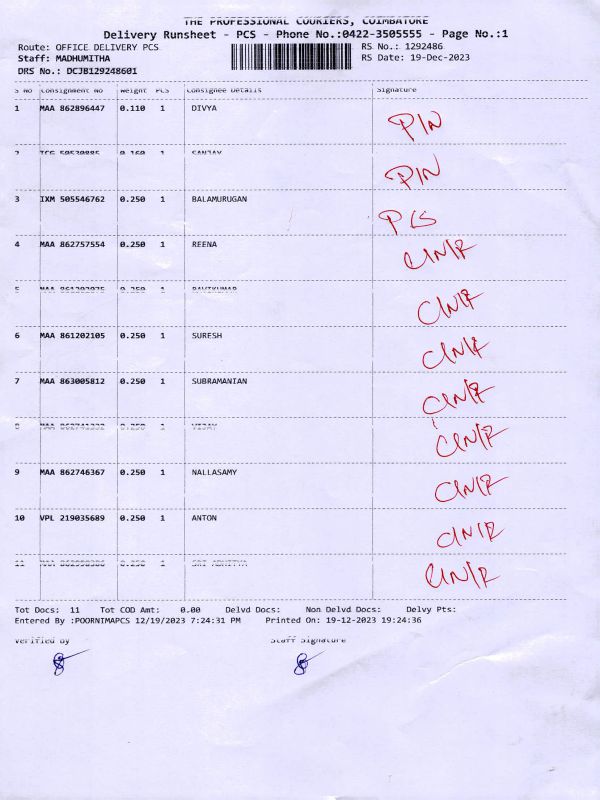 THE PROFESSIONAL COURIERS, COIMBATORE
Delivery Runsheet - PCS - Phone No.:0422-3505555 - Page No.:1
Route: OFFICE DELIVERY PCS RS No.: 1292486
Staff: MADHUMITHA RS Date: 19-Dec-2023
DRS No.: DCJB129248601
S No Consignment No Weight PCS Consignee Details Signature
1 MAA 862896447 0.110 1 DIVYA PIN
2 0.160 1 SANJAY PIN
3 IXM 505546762 0.250 1 BALAMURUGAN PCS
4 MAA 862757554 0.250 1 REENA
5 MAA 0.250 1 RAVIKUMAR
6 MAA 861202105 0.250 1 SURESH
7 MAA 863005812 0.250 1 SUBRAMANIAN
8 MAA 0.250 1 VIJAY
9 MAA 862746367 0.250 1 NALLASAMY
10 VPL 219035689 0.250 1 ANTON
11 MAA 0.250 1
Tot Docs: 11 Tot COD Amt: 0.00 Delvd Docs: Non Delvd Docs: Delvy Pts:
Entered By :POORNIMAPCS 12/19/2023 7:24:31 PM Printed On: 19-12-2023 19:24:36
Verified By Staff Signature